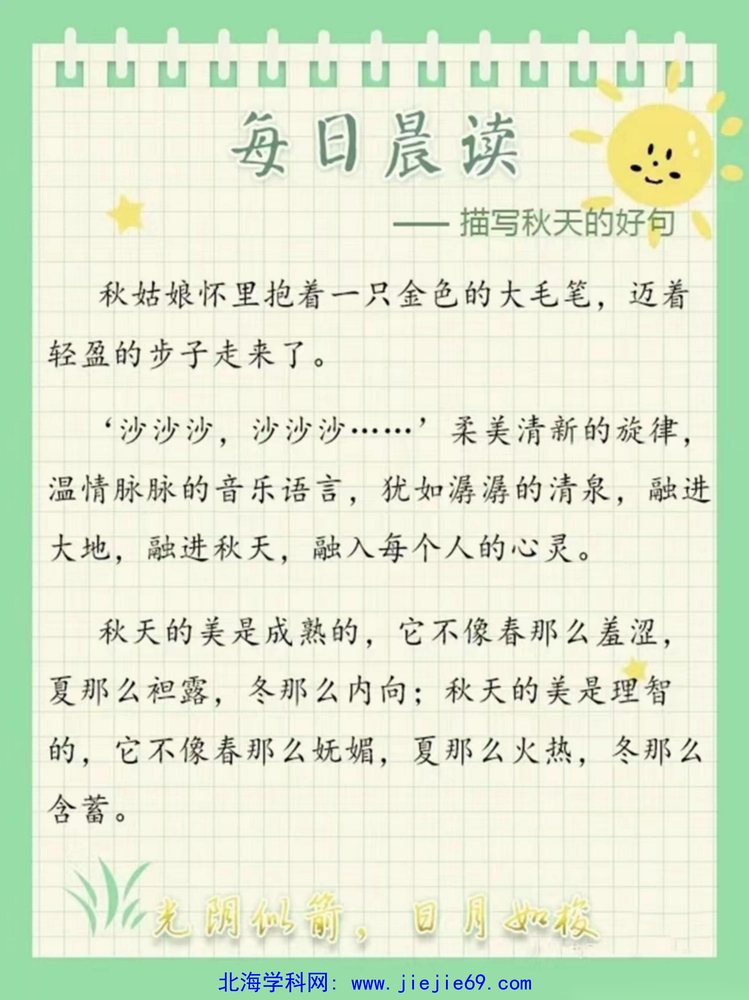 每日晨读
—— 描写秋天的好句
秋姑娘怀里抱着一只金色的大毛笔，迈着
轻盈的步子走来了。
‘沙沙沙，沙沙沙……’柔美清新的旋律，
温情脉脉的音乐语言，犹如潺潺的清泉，融进
大地，融进秋天，融入每个人的心灵。
秋天的美是成熟的，它不像春那么羞涩，
夏那么袒露，冬那么内向；秋天的美是理智
的，它不像春那么妩媚，夏那么火热，冬那么
含蓄。
光阴似箭，日月如梭
北海学科网: www.jiejie69.com